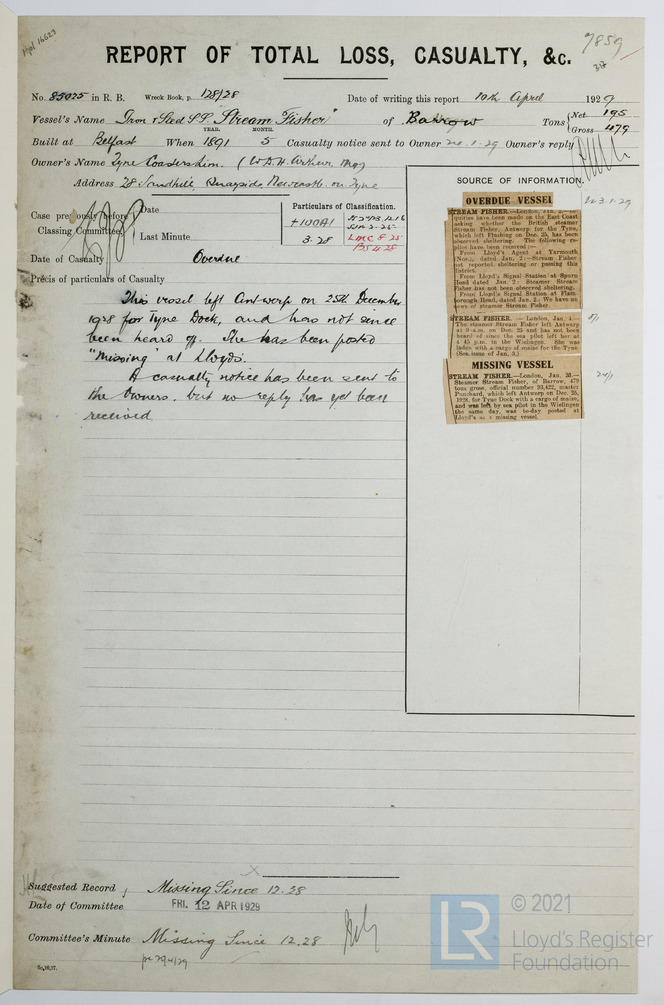 7859
REPORT OF TOTAL LOSS, CASUALTY, &c.
No. 85025 in R. B. Wreck Book, p. 128/28 Date of writing this report 10th April 1929
Vessel's Name Iron & Steel S.S. "Stream Fisher" of Barrow Tons Net 195
Gross 479
YEAR. MONTH.
Built at Belfast When 1891 5 Casualty notice sent to Owner 20.1.29 Owner's reply
Owner's Name Tyne Coastership. (W.D.H. Arkew. Mgr)
Address 28 Sandhill, Quayside, Newcastle on Tyne
SOURCE OF INFORMATION.
Case previously before Classing Committee
Date
Last Minute
Particulars of Classification.
+100A1
3.28
LMC 8.25
BS 4.28
Date of Casualty Overdue
Précis of particulars of Casualty
This vessel left Antwerp on 25th December
1928 for Tyne Dock, and has not since
been heard of. She has been posted
"Missing" at Lloyds.
A casualty notice has been sent to
the Owners, but no reply has yet been
received
OVERDUE VESSEL
STREAM FISHER.—London, Jan. 2.—In-
quiries have been made on the East Coast
asking whether the British steamer
Stream Fisher, Antwerp for the Tyne,
which left Flushing on Dec. 25, has been
observed sheltering. The following re-
plies have been received:—
From Lloyd's Agent at Yarmouth
(Nor.), dated Jan. 2: Stream Fisher
not reported sheltering or passing this
district.
From Lloyd's Signal Station at Spurn
Head dated Jan. 2: Steamer Stream
Fisher has not been observed sheltering.
From Lloyd's Signal Station at Flam-
borough Head, dated Jan. 2: We have no
news of steamer Stream Fisher.
3.1.29
STREAM FISHER.—London, Jan. 4.—
The steamer Stream Fisher left Antwerp
at 9 a.m. on Dec. 25 and has not been
heard of since the sea pilot left her at
4 45 p.m. in the Wielingen. She was
laden with a cargo of maize for the Tyne
(See issue of Jan. 3.)
5/1
MISSING VESSEL
STREAM FISHER.—London, Jan. 23.—
Steamer Stream Fisher, of Barrow, 479
tons gross, official number 93,422, master
Punchard, which left Antwerp on Dec. 25,
1928, for Tyne Dock with a cargo of maize,
and was left by sea pilot in the Wielingen
the same day, was to-day posted at
Lloyd's as a missing vessel.
24/1
Suggested Record Missing Since 12.28
Date of Committee FRI. 12 APR 1929
Committee's Minute Missing Since 12.28
LR
© 2021
Lloyd's Register
Foundation